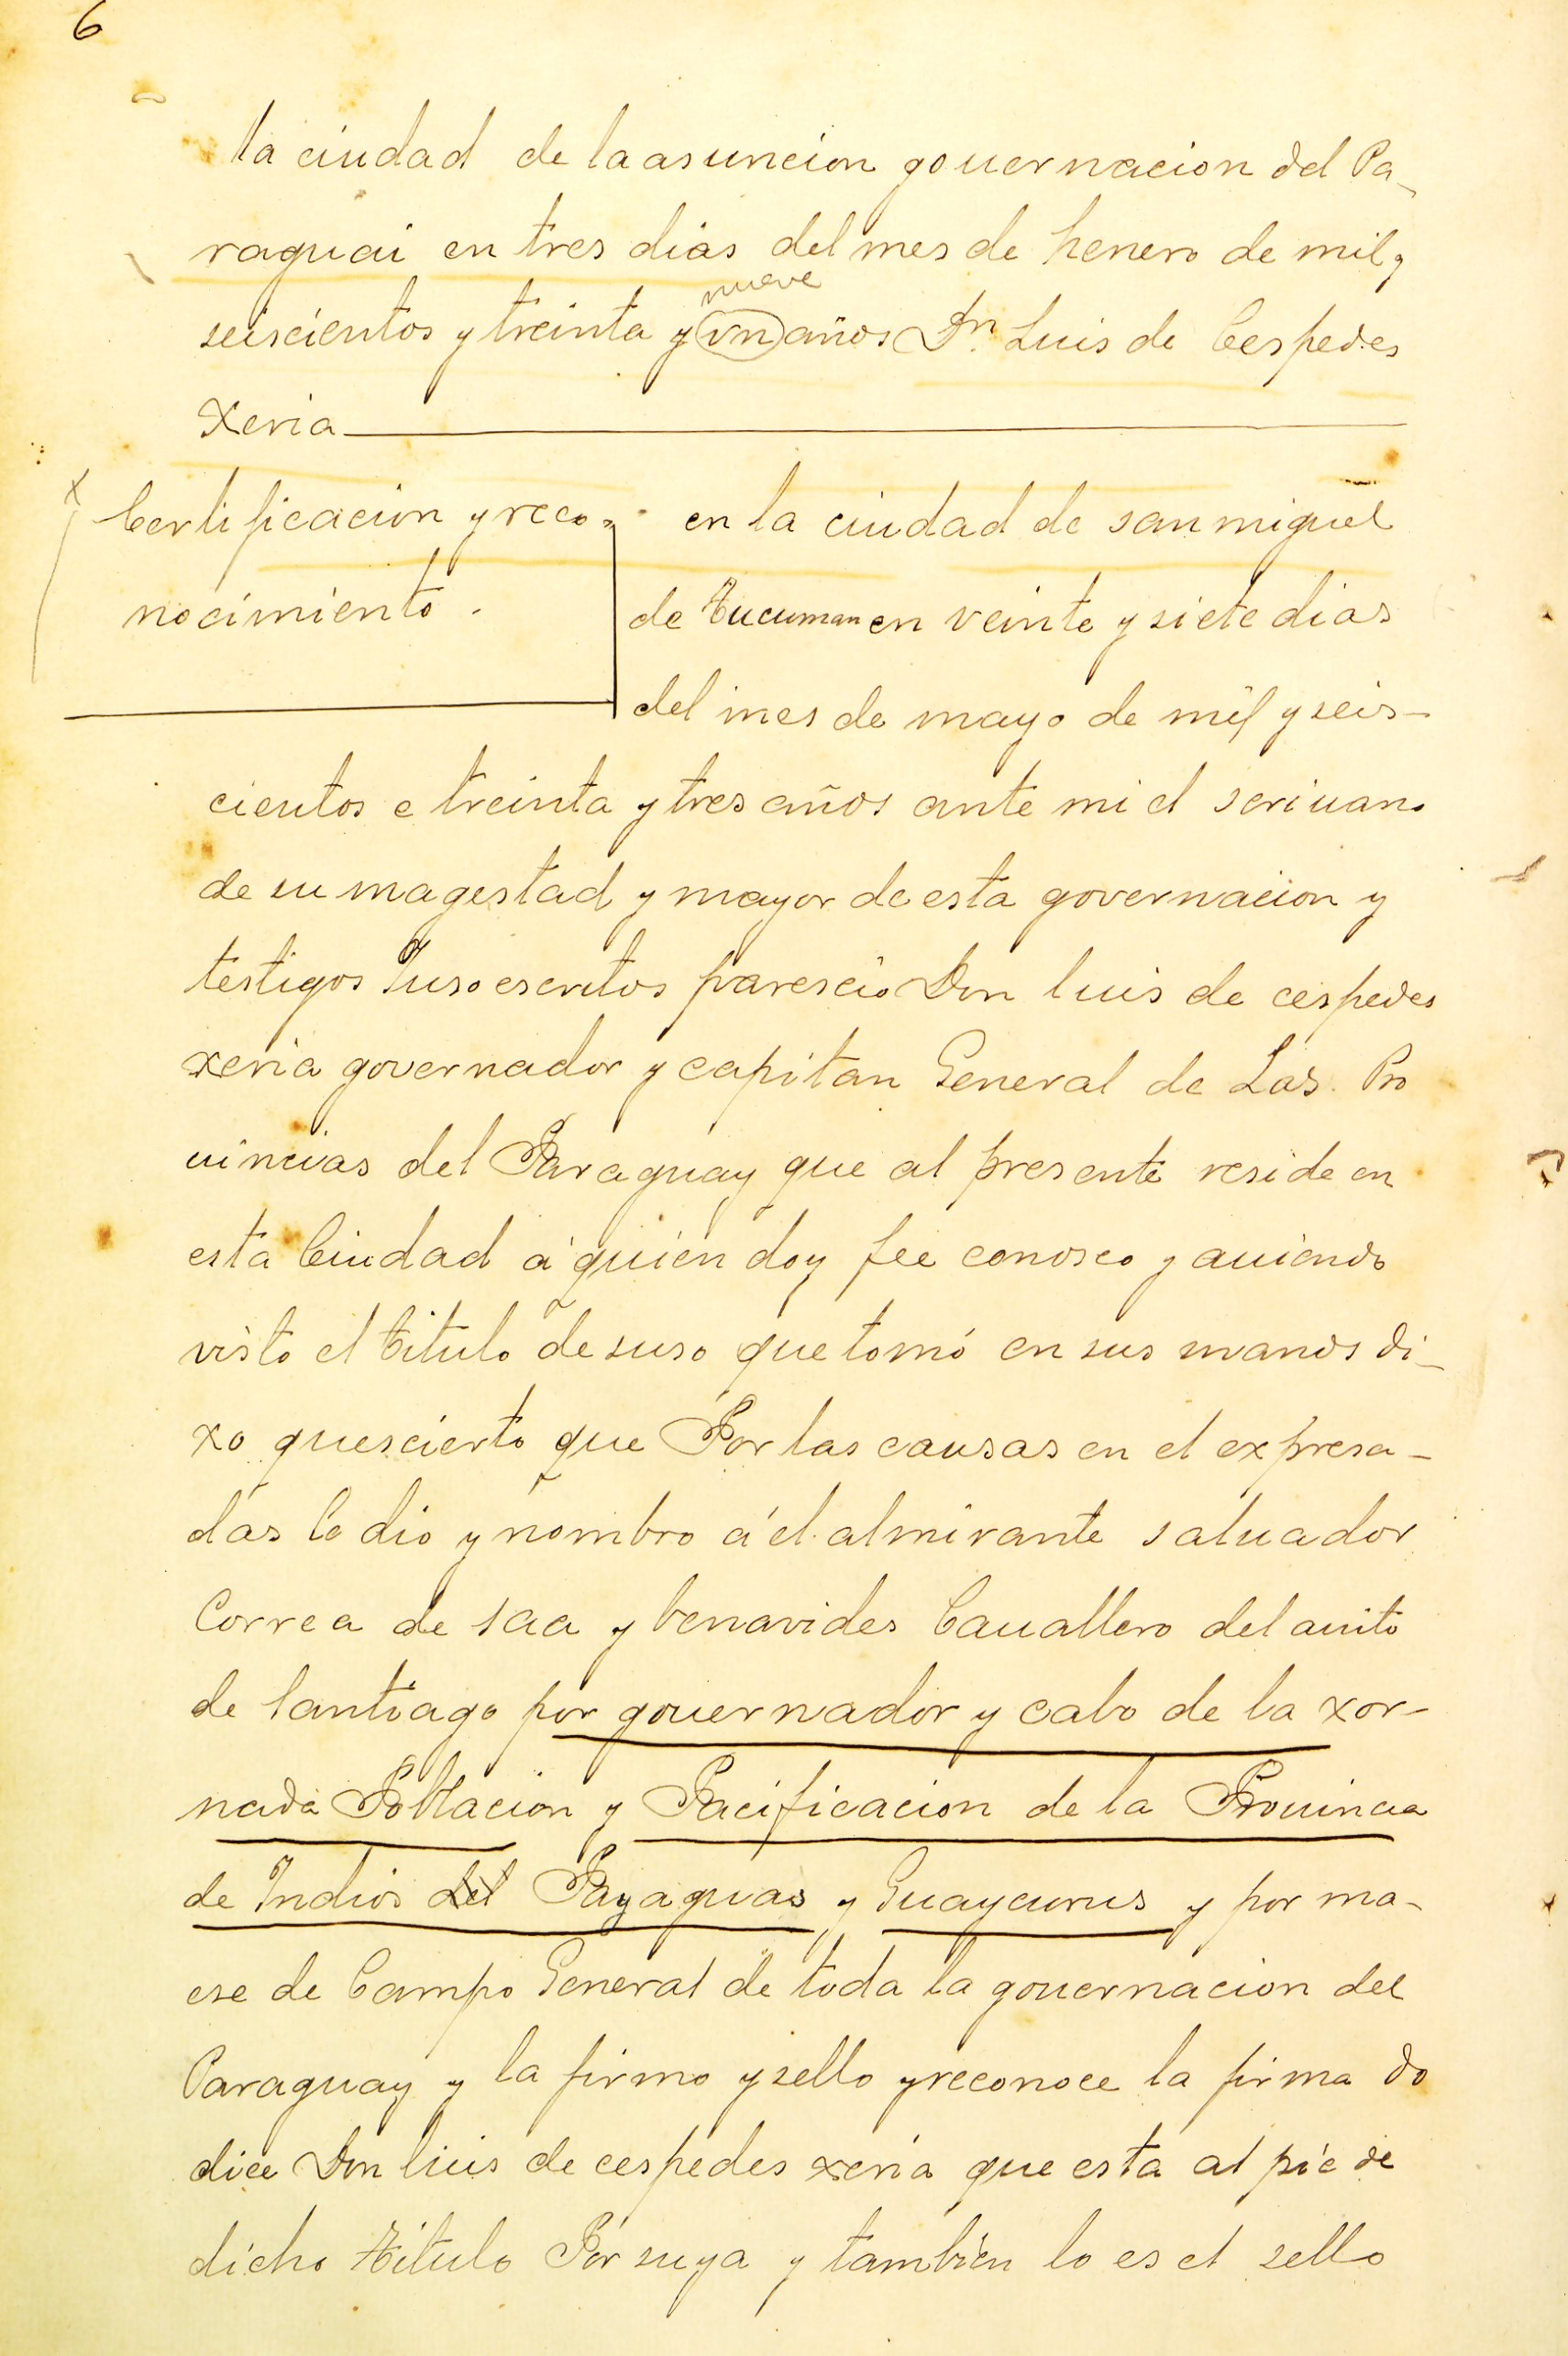 6
la ciudad de la asuncion gouernacion del Pa-
raguai en tres dias del mes de henero de mil y
nueve
seiscientos y treinta y vn años Dn. Luis de Cespedes
Xeria
x Certificacion y reco-
nocimiento.
en la ciudad de san miguel
de tucuman en veinte y siete dias
del mes de mayo de mil y seis-
cientos e treinta y tres años ante mi el scriuano
de su magestad y mayor de esta governacion y
testigos Yusoescritos parescio Don luis de cespedes
xeria governador y capitan General de Las Pro
uincias del Paraguay que al presente reside en
esta Ciudad a quien doy fee conosco y auiendo
visto el titulo de suso que tomó en sus manos di-
xo quescierto que Por las causas en el expresa-
das le dio y nombro á el almirante saluador
Correa de saa y benavides Cauallero del auito
de Santiago por gouernador y cabo de la xor-
nada Poblacion y Pacificacion de la Prouincia
de Indios del Payaguas y Guaycurus y por ma-
ese de Campo General de toda la gouernacion del
Paraguay y la firmo y sello y reconoce la firma do
dice Don luis de cespedes xeria que esta al pie de
dicho titulo Por suya y tambien lo es el sello